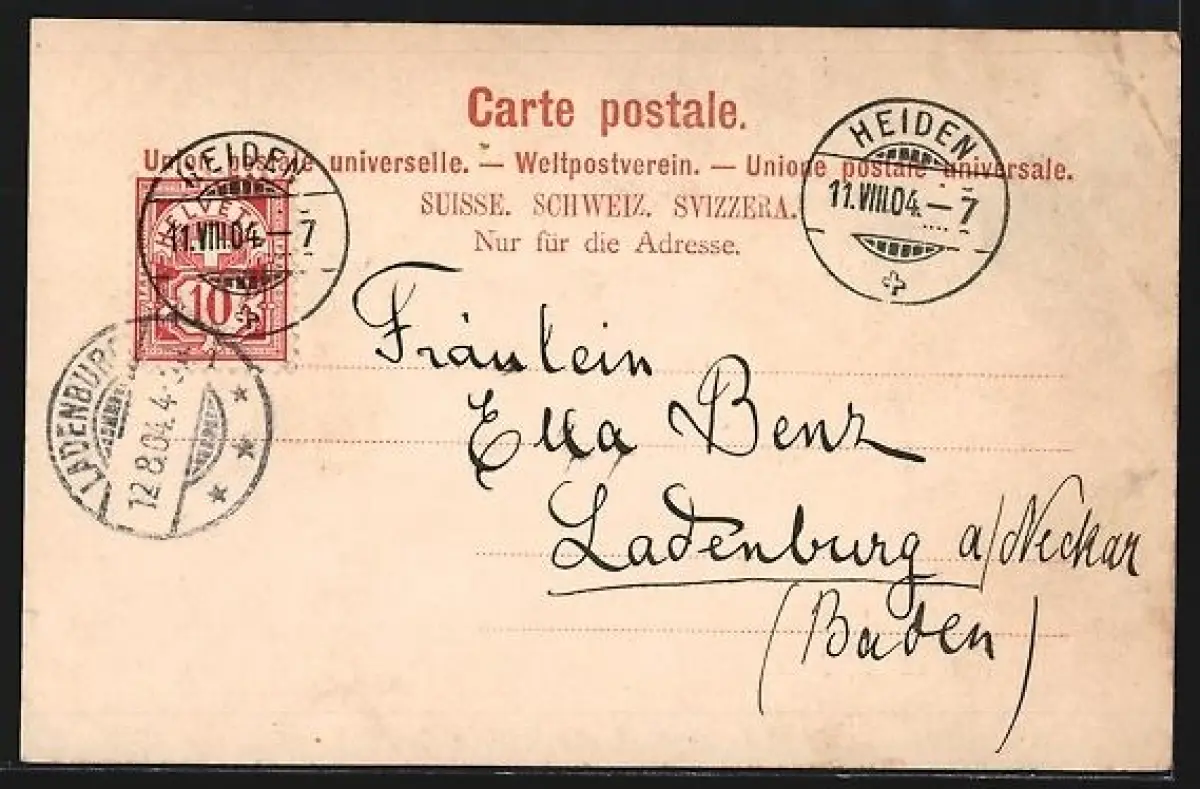 Carte postale.
Union postale universelle. — Weltpostverein. — Unione postale universale.
SUISSE. SCHWEIZ. SVIZZERA.
Nur für die Adresse.
HEIDEN
11.VIII.04.–7
HELVETIA
10
HEIDEN
11.VIII.04.–7
LADENBURG
12.8.04.4-
Fräulein
Ella Benz
Ladenburg a/Neckar
(Baden)